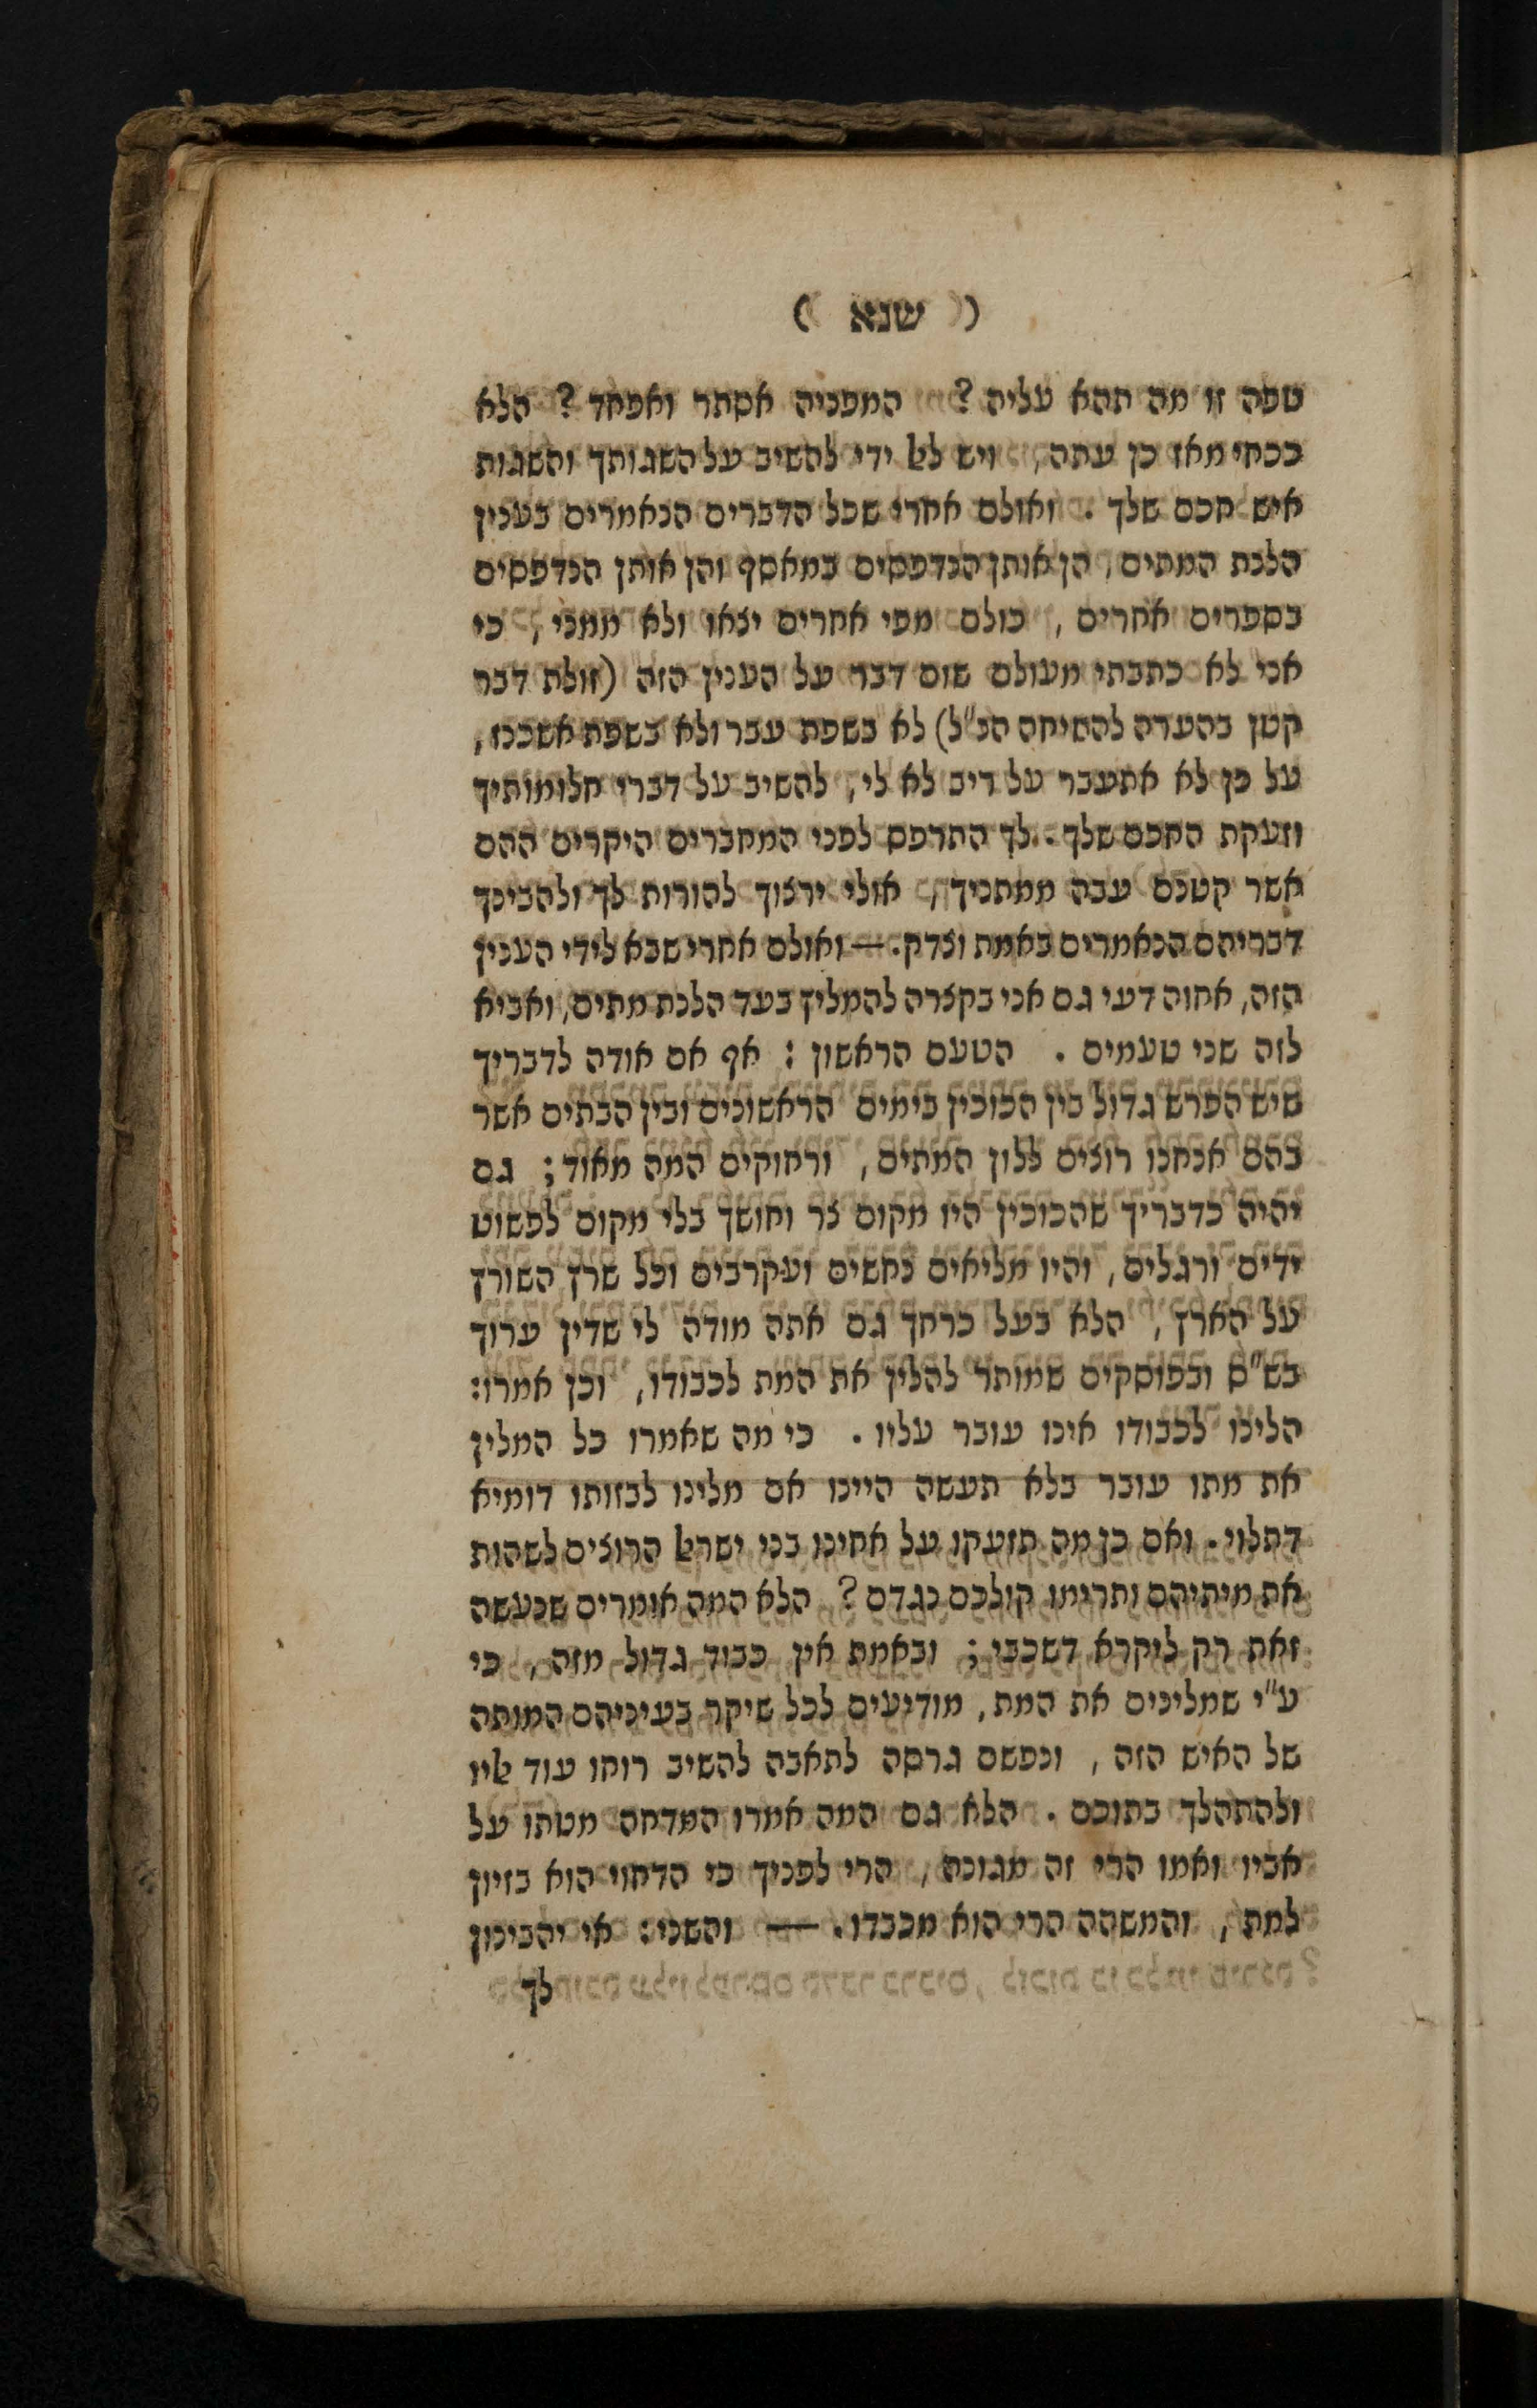 ( שנא )
טפה זו מה תהא עליה ? המפניה אסתר ואפחד ? הלא
ככחי מאז כן עתה, ויש לאל ידי להשיב על השגותך והשגות
איש חכם שלך . ואולם אחרי שכל הדברים הנאמרים בענין
הלנת המתים, הן אותן הנדפסים במאסף והן אותן הנדפסים
בספרים אחרים , כולם מפי אחרים יצאו ולא ממני , כי
אני לא כתבתי מעולם שום דבר על הענין הזה (זולת דבר
קטן בהערה להשיחה הנ"ל) לא בשפת עבר ולא בשפת אשכנז,
על כן לא אתעבר על ריב לא לי, להשיב על דברי חלומותיך
וזעקת החכם שלך . לך התרפס לפני המחברים היקרים ההם
אשר קטנם עבה ממתניך , אולי ירצוך להורות לך ולהבינך
דבריהם הנאמרים באמת וצדק. — ואולם אחרי שבא לידי הענין
הזה, אחוה דעי גם אני בקצרה להמליץ בעד הלנת מתים, ואביא
לזה שני טעמים . הטעם הראשון : אף אם אודה לדבריך
שיש הפרש גדול בין הכוכין בימים הראשונים ובין הבתים אשר
בהם אנחנו רוצים ללון המתים , ורחוקים המה מאוד ; גם
יהיה כדבריך שהכוכין היו מקום צר וחושך בלי מקום לפשוט
ידים ורגלים , והיו מליאים נחשים ועקרבים וכל שרץ השורץ
על הארץ , הלא בעל כרחך גם אתה מודה לי שדין ערוך
בש"ס ובפוסקים שמותר להלין את המת לכבודו, וכן אמרו:
הלינו לכבודו אינו עובר עליו . כי מה שאמרו כל המלין
את מתו עובר בלא תעשה היינו אם מלינו לבזותו דומיא
דתלוי . ואם כן מה תזעקו על אחינו בני ישראל הרוצים לשהות
את מיתיהם ותרימו קולכם כנגדם ? הלא המה אומרים שנעשה
זאת רק ליקרא דשכבי ; ובאמת אין כבוד גדול מזה , כי
ע"י שמלינים את המת , מודיעים לכל שיקר בעיניהם המותה
של האיש הזה , ונפשם גרסה לתאבה להשיב רוחו עוד אליו
ולהתהלך בתוכם . הלא גם המה אמרו המדחה מטתו על
אביו ואמו הרי זה מגונה , הרי לפניך כי הדחוי הוא בזיון
למת , והמשהה הרי הוא מכבדו . — והשני : אי יהבינון
לך